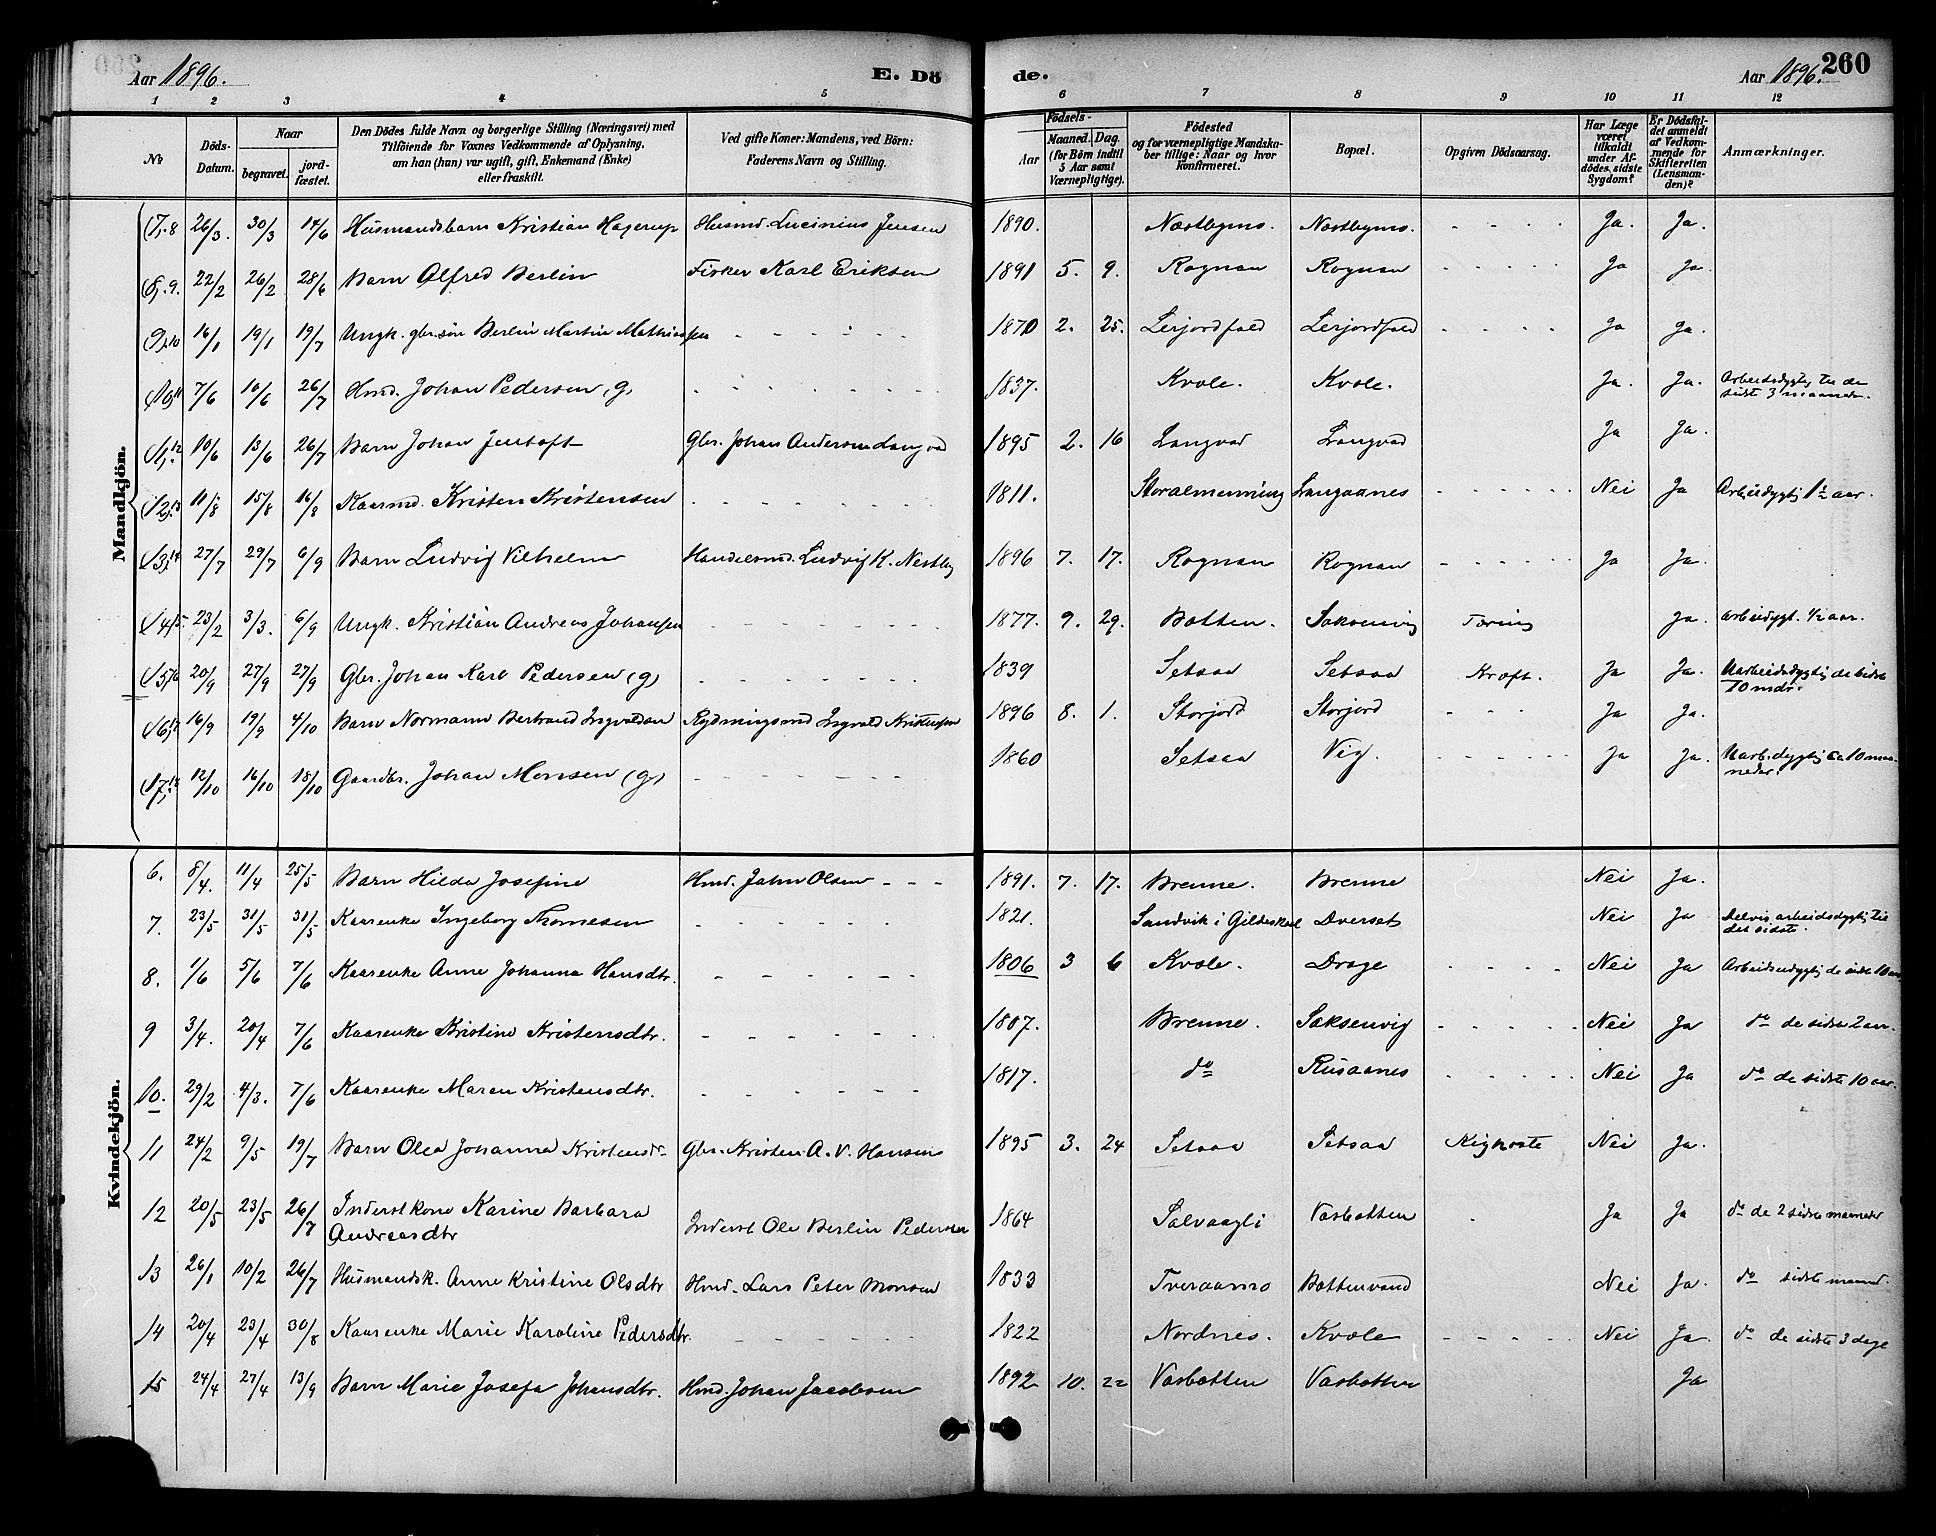 Aar 1896. E. Dö de. Aar 1896. 260
1 2 3 4 5 6 7 8 9 10 11 12
No
Döds-Datum.
Naar
begravet.
jordfæstet.
Den Dödes fulde Navn og borgerlige Stilling (Næringsvei) med
Tilföiende for Voxnes Vedkommende af Oplysning,
om han (hun) var ugift, gift, Enkemand (Enke)
eller fraskilt.
Ved gifte Koner: Mandens, ved Börn:
Faderens Navn og Stilling.
Födsels-
Aar
Maaned. Dag.
(for Börn indtil
5 Aar samt
Værnepligtige).
Födested
og for værnepligtige Mandska-
ber tillige: Naar og hvor
konfirmeret.
Bopæl.
Opgiven Dödsaarsag.
Har Læge
været
tilkaldt
under Af-
dödes sidste
Sygdom?
Er Dödsfal-
det anmeldt
af Vedkom-
mende for
Skifteretten
(Lensman-
den)?
Anmærkninger.
Mandkjön.
8 26/3. 30/3 14/6 Husmandsbarn Kristian Hagerup Husmd. Lucinius Jensen 1890. Næstbymo. Næstbymo. - - - - Ja. Ja.
9. 22/2 26/2 28/6 Barn Alfred Berlin Fisker Karl Eriksen 1891 5. 9. Rognan Rognan - - - - - Ja Ja.
10 16/1 19/1 19/7 Ungk. gbr.søn Berlin Martin Mathiassen - - - - - 1870 2. 25. Lerjordfald Lerjordfald - - - - Ja Ja.
11 7/6 10/6 26/7 Hmd. Johan Pedersen (g) - - - - - - 1837. Kvæle. Kvæle. Ja. Ja. Arbeidsdygtig til de
sidste 3 maaneder.
12 10/6 13/6 26/7 Barn Johan Jentoft Gbr. Johan Andersen Langvad 1895 2. 16 Langvad Langvad Ja Ja.
13 11/8 15/8 16/8 Kaarmd. Kristen Kristensen - - - - - - 1811. Storalmenning Langaanes - - - - - - Nei Ja Arbeidygtig 1 1/2 aar.
14 27/7 29/7 6/9 Barn Ludvig Vilhelm Handelsmd. Ludvig K. Nestby 1896 7. 17. Rognan Rognan - - - - - - Ja Ja.
15. 23/2 3/3. 6/9 Ungk. Kristian Andreas Johansen - - - - - - 1877. 9. 29. Botten. Saksenvig Tæring Ja. Arbeidygt. 1/2 aar.
16 20/9 27/9 27/9 Gbr. Johan Karl Pedersen (g) - - - - - - 1839 Setsaa Setsaa Kræft. Ja Ja. Uarbeidsdygtig de sidste
10 mdr.
17 16/9 19/9 4/10 Barn Normann Bertrand Ingvaldsen Rydningsmd Ingvald Kristensen 1896 8. 1. Storjord Storjord - - - Ja Ja.
18 12/10 16/10 18/10 Gaardbr. Johan Monsen (g) - - - - - - 1860 Setsaa Vig. - - - - - - Ja Ja. Uarb.dygtig ca 10 maa-
neder.
Kvindekjön.
6. 8/4. 11/4 25/5 Barn Hilda Josefine Hmd. John Olsen - - - 1891. 7. 17. Brenne. Brenne Nei Ja.
7. 23/5 31/5 31/5 Kaarenke Ingeborg Thomesen - - - - - - 1821. Sandvik i Gildeskaal Dverset Nei Ja Delvis arbeidsdygtig til
det sidste.
8. 1/6 5/6 7/6 Kaarenke Anne Johanna Hansdtr. - - - - - - 1806 3 6 Kvæle. Drage - - - - Nei Ja Arbeidsudygtig de sidste 10 aar
9 3/4. 20/4 7/6 Kaarenke Kristine Kristensdtr. - - - - - - 1807. Brenne. Saksenvig - - - - - - Nei Ja do de sidste 2 aar.
10. 29/2 4/3. 7/6 Kaarenke Maren Kristensdtr. - - - - - - 1817. do Rusaanes - - - - - Nei Ja do de sidste 10 aar.
11 24/2 9/5 19/7 Barn Olea Johanna Kristensdr. Gbr. Kristen A. V. Hansen 1895 3. 24 Setsaa Setsaa Kighoste Nei Ja.
12 20/5 23/5 26/7 Inderst kone Karine Barbara
Andreasdtr Inderst Ole Berlin Pedersen 1864 Solvaagli Vasbotten - Ja Ja do de 2 sidste maaneder
13 26/1 10/2 26/7 Husmandsk. Anne Kristine Olsdtr Hmd. Lars Peter Monsen 1833 Tveraamo Bottenvand Nei Ja. do sidste maaned.
14 20/4 23/4 30/8 Kaarenke Marie Karoline Pedersdtr. - - - - - 1822 Nordnes. Kvæle - - - - Nei Ja. do de sidste 3 dage
15 24/4 27/4 13/9 Barn Marie Josefa Johansdtr. Hmd. Johan Jacobsen 1892 10. 22 Vasbotten Vasbotten Ja